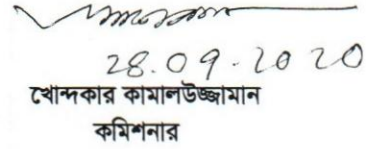 28.09.2020
খোন্দকার কামালউজ্জামান
কমিশনার